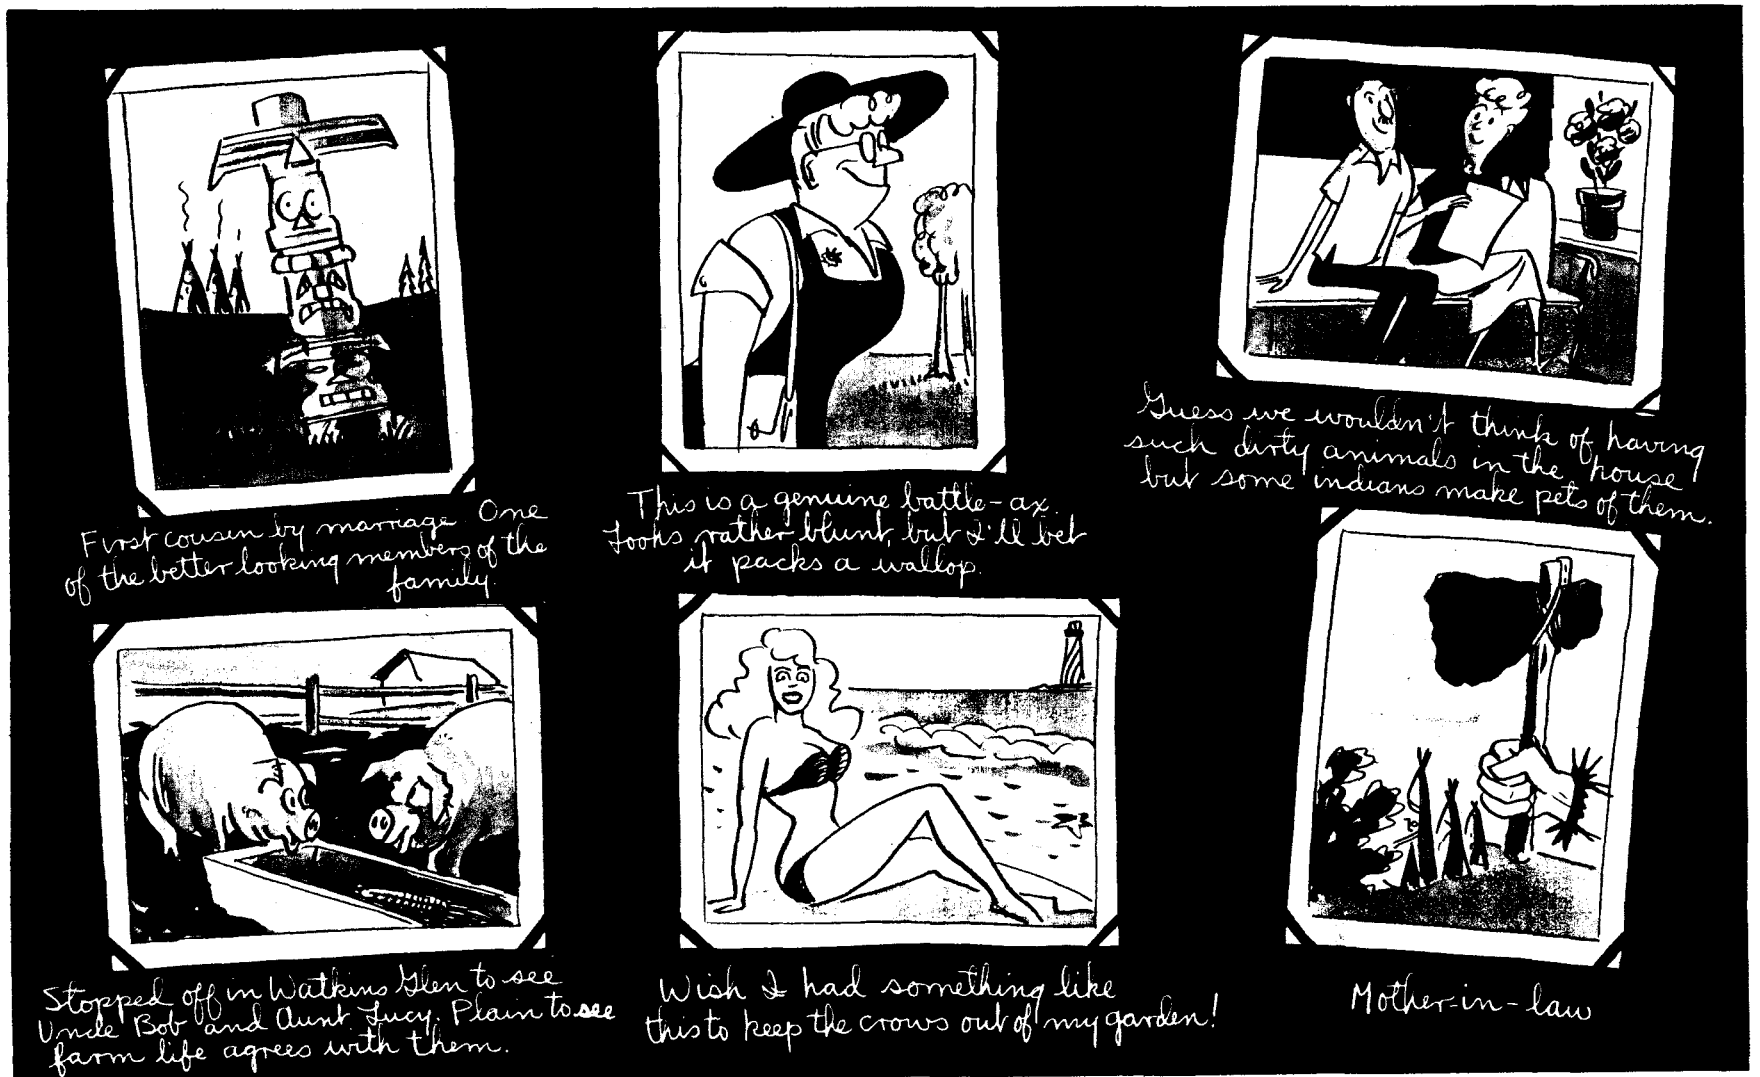 First cousin by marriage. One
of the better looking members of the
family.
This is a genuine battle-ax.
Looks rather blunt, but I'll bet
it packs a wallop.
Guess we wouldn't think of having
such dirty animals in the house
but some indians make pets of them.
Stopped off in Watkins Glen to see
Uncle Bob and Aunt Lucy. Plain to see
farm life agrees with them.
Wish I had something like
this to keep the crows out of my garden!
Mother-in-law